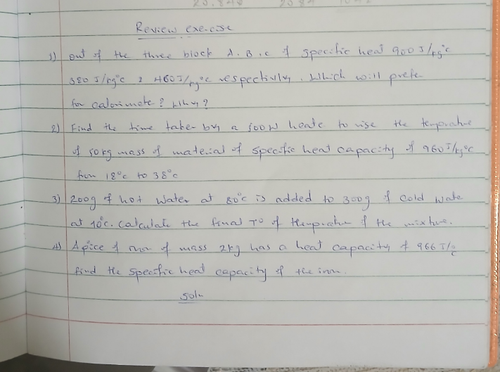 Review exercise
1) out of the three block A, B, C of specific heat 900 J/kg°C
380 J/kg°C & 460 J/kg°C respectively. Which will prefe
for calorimate? Why?
2) Find the time taken by a 500W heate to rise the temperature
of 50kg mass of material of specific heat capacity of 960 J/kg°C
from 18°C to 38°C
3) 200g of hot water at 80°C is added to 300g of cold wate
at 10°C. Calculate the final T° of the mixture.
4) A piece of iron of mass 2kg has a heat capacity of 966 J/°C
find the specific heat capacity of the iron.
Soln